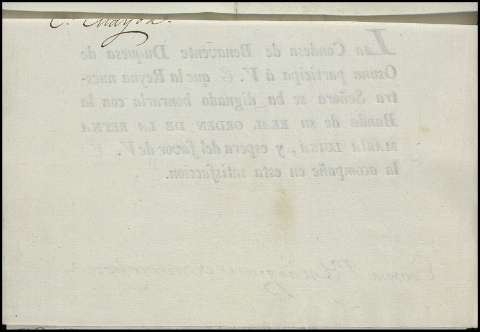 C. Mayor.
La Condesa de Benavente Duquesa de
Osuna participa á V. E. que la Reyna nues-
tra Señora se ha dignado honrarla con la
Banda de su REAL ORDEN DE LA REYNA
MARIA LUISA, y espera del favor de V. E.
la acompañe en esta satisfaccion.